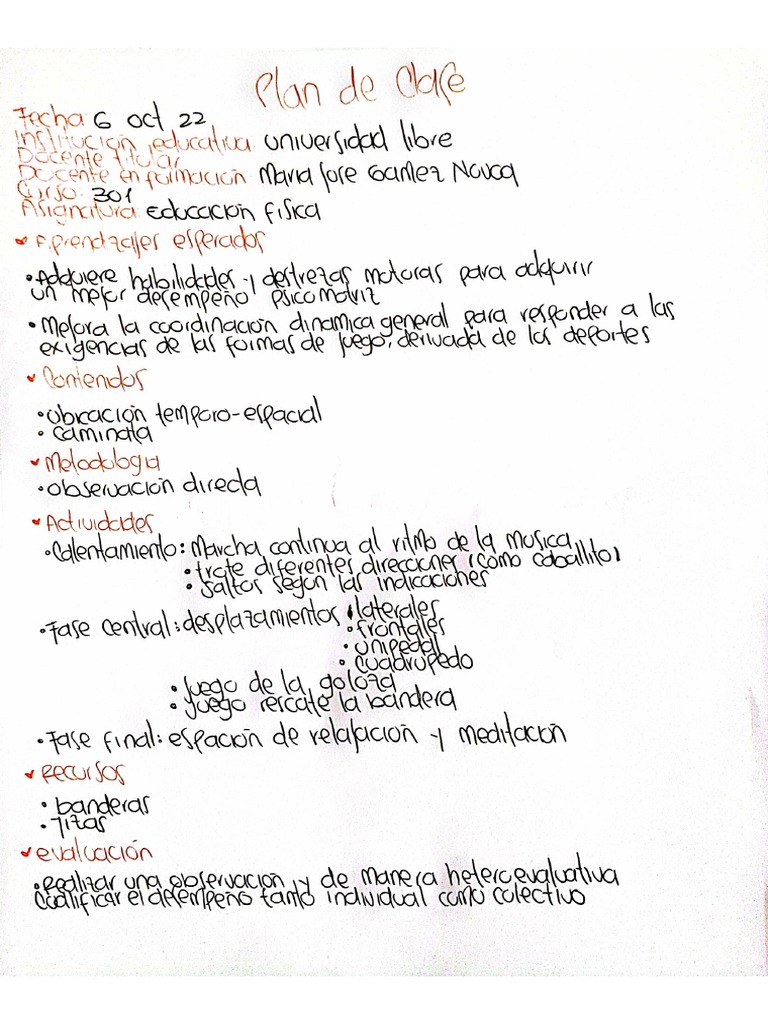 Plan de Clase
Fecha: 6 oct 22
Institución educativa: universidad libre
Docente titular
Docente en formación Maria Jose Gamez Novoa
Curso: 301
Asignatura: Educación Física
Aprendizajes esperados
• Adquiere habilidades y destrezas motoras para adquirir
un mejor desempeño psicomotriz
• Mejora la coordinación dinamica general para responder a las
exigencias de las formas de juego, derivada de los deportes
Contenidos
• ubicación temporo-espacial
• caminata
Metodologia
• observación directa
Actividades
• Calentamiento: Marcha continua al ritmo de la musica
• trote diferentes direcciones (como caballito)
• saltos según las indicaciones
• Fase central: desplazamientos • laterales
• frontales
• unipedal
• cuadrupedo
• Juego de la goloza
• Juego rescate la bandera
• Fase final: espación de relajación y meditación
Recursos
• banderas
• Tizas
evaluación
• Realizar una observación y de manera heteroevaluativa
Cualificar el desempeño tanto individual como colectivo